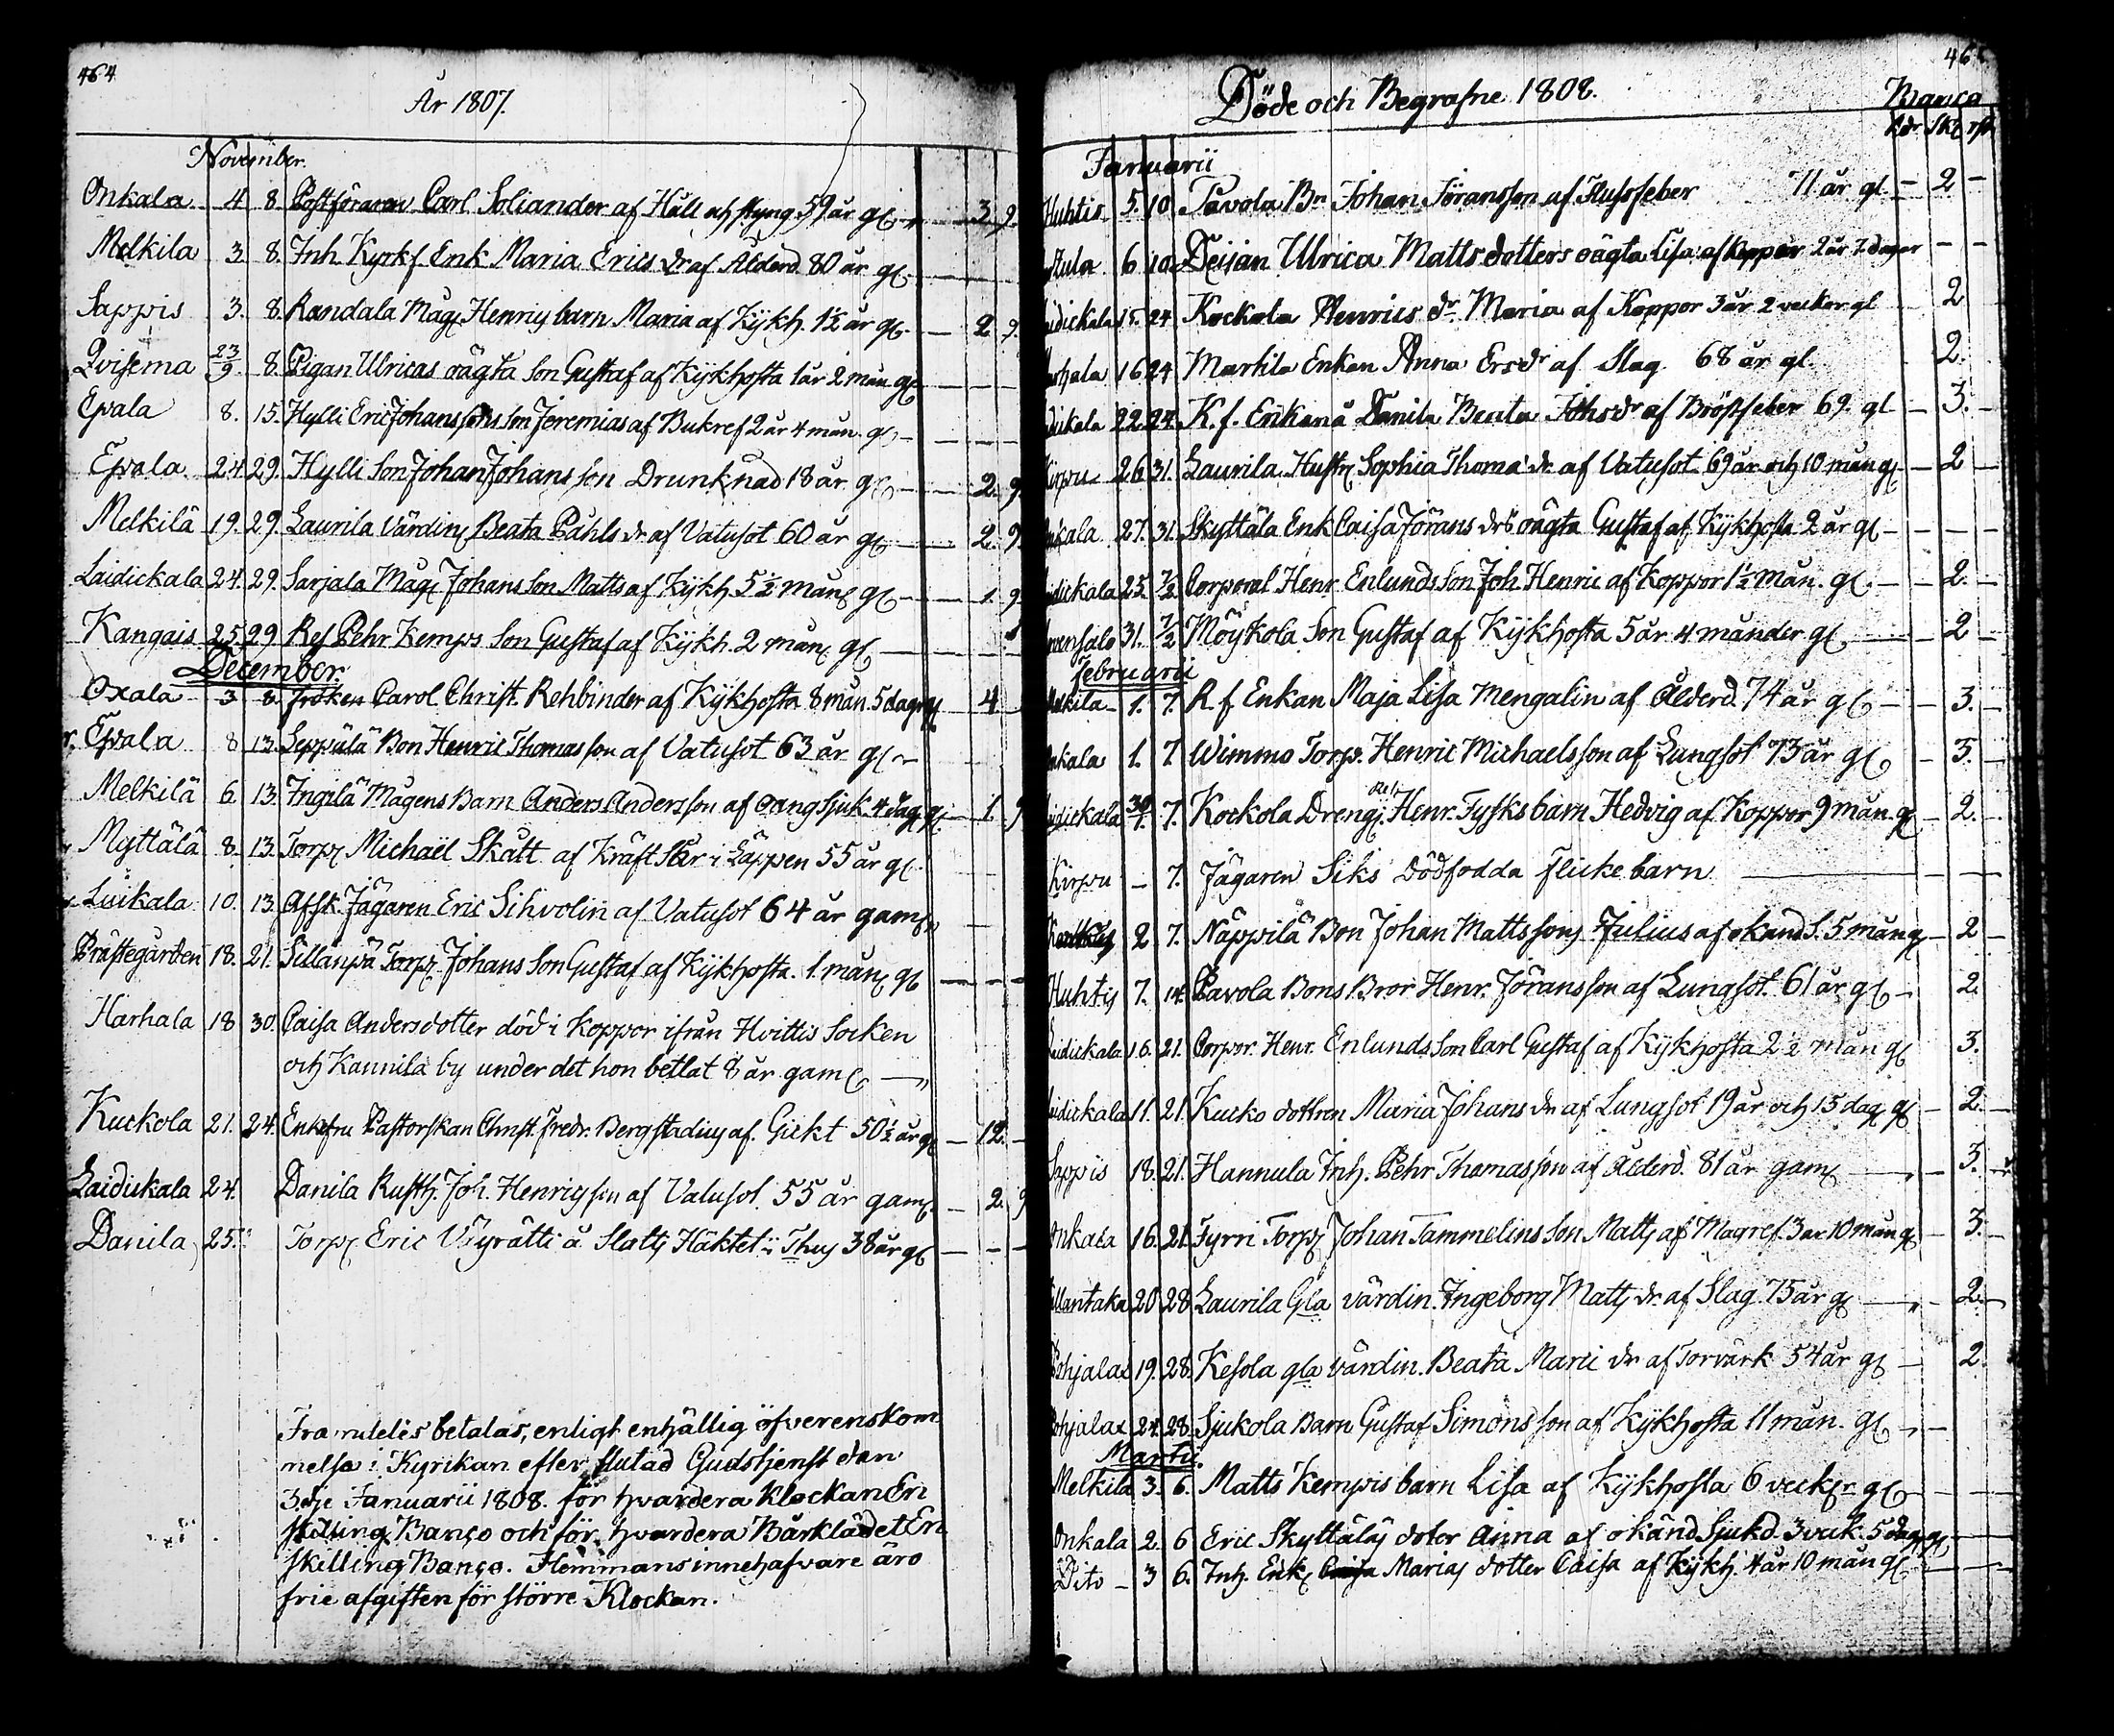 464
År 1807.
November.
Onkala 4 8. Postföraren Carl Soliander af Håll och styng 59 år gl. 3. 9.
Melkila 3 8. Inh. Kyrkf. Enk Maria Erics dr af Ålderd. 80 år gl.
Sappis 3. 8. Randala Mågs Henrics barn Maria af Kykh. 1½ år gl. 2 9.
Qvisema 23/9. 8. Pigan Ulricas oägta Son Gustaf af Kykhosta 1 år 2 mån. gl.
Epala 8. 15. Hylli Eric Johanssons Son Jeremias af Bukref 2 år 4 mån. gl.
Epala 24 29. Hylli Son Johan Johansson Drunknad 18 år gl. 2. 9
Melkilä 19. 29. Laurila Värdin Beata Påhls dr af Vatusot 60 år gl. 2 9.
Laidickala 24. 29. Sarjala Mågs Johans Son Matts af Kykh. 5½ mån gl. 1. 9
Kangais 25 29 Ref Pehr Kemps Son Gustaf af Kykh. 2 mån. gl.
December.
Oxala 3 8. Fröken Carol. Christ. Rehbinder af Kykhosta 8 mån. 5 dagr gl. 4
Epala 8 13. Seppälä Bon Henric Thomasson af Vatusot 63 år gl.
Melkilä 6. 13. Ingilä Mågens Barn Anders Andersson af Ångsjuk. 4 dag. gl. 1. 9
Myttälä 8. 13. Torp. Michaël Skått af Kräft Sår i Läppen 55 år gl.
Luikala 10. 13. Afsk. Jägaren Eric Sihvolin af Vatusot 64 år gaml.
Prästegården 18. 21. Sillanpä Torp. Johans Son Gustaf af Kykhosta. 1. mån gl.
Harhala 18 30. Caisa Andersdotter död i Koppor ifrån Hvittis Socken
och Kaunila by under det hon betlat 8 år gaml
Kuckola 21. 24. Enkefru Pastorskan Christ. Fredr. Bergstadius af Gickt 50½ år gl. 12.
Laidickala 24. Danila Rusth. Joh. Henricsson af Vatusot. 55 år gaml. 2. 9
Danila 25. Torp. Eric Vyrätti å Slotts Häktet i Thus 38 år gl.
Framdeles betalas, enligt enhällig öfverenskom
melse i Kyrikan efter slutad Gudstjenst den
3dje Januarii 1808. för hvardera Klockan En
skilling Banco och för hvardera Bårklädet En
skilling Banco. Hemmans innehafvare äro
frie afgiften för större Klockan.
Döde och Begrafne 1808.
Banco
Rdr Sk rst
Januarii
Huhtis 5. 10. Pavola Bn Johan Jöransson af Flussfeber 11 år gl. 2
6 10. Deijan Ulrica Mattsdotters oägta Lisa af Koppor 2 år 7. dagar
Laidickala 15. 24 Kockola Henrics dr Maria af Koppor 3 år 2 veckor gl 2
Harhala 16 24 Martila Enkan Anna Ersdr af Slag 68 år gl. 2.
Luikala 22. 24. K. f. Enkan å Danila Beata Johsdr af Bröstfeber 69. gl 3.
Kirpu 26 31. Laurila Hustr. Sophia Thomæ dr af Vatusot 69 år och 10 mån gl 2
Onkala 27. 31. Skyttäla Enk Caisa Jörans drs oägta Gustaf af Kykhosta 2 år gl
Laidickala 25. 7/2 Corporal Henr. Enlunds Son Joh. Henric af Koppor 1½ mån. gl. 2.
31. 7/2 Möyskola Son Gustaf af Kykhosta 5 år 4 månder gl 2
Februarii
Melkila 1. 7. R f Enkan Maja Lisa Mengalin af Ålderd. 74 år gl 3.
Onkala 1. 7 Wimmo Torp. Henric Michaelsson af Lungsot 73 år gl 3.
Laidickala 30/1. 7. Kockola Dreng. Henr. Fysks barn Hedvig af Koppor 9 mån. gl 2.
Kirpu 7. Jägaren Siks Dödfödda flicke barn
2 7. Näppilä Bon Johan Mattssons Julius af okänd S. 5 mån gl 2
Huhtis 7. 14. Pavola Bons Bror Henr. Jöransson af Lungsot. 61 år gl. 2.
Laidickala 16. 21. Corpor. Henr. Enlunds Son Carl Gustaf af Kykhosta 2½ mån gl 3.
Laidickala 11. 21. Kucko dottren Maria Johans dr af Lungsot 19 år och 15 dag. gl 2.
Sappis 18. 21. Hannula Inh. Pehr Thomasson af Ålderd. 81 år gaml 3.
Onkala 16. 21. Fyrri Torp. Johan Tammelins Son Matts af Magref. 3 år 10 mån gl 3.
20 28 Laurila Gla värdin. Ingeborg Matts dr af Slag 75 år gl 2.
Pohjalax 19. 28. Kesola gla värdin. Beata Marci dr af Torvärk 54 år gl 2
Pohjalax 24. 28. Sjukola Barn Gustaf Simonsson af Kykhosta 11 mån. gl.
Martii
Melkila 3. 6. Matts Kempis barn Lisa af Kykhosta 6 veckr gl
Onkala 2. 6 Eric Skyttälas doter Anna af okänd Sjukd. 3 veck. 5 dag. gl.
Dito 3 6. Inh. Enk. Marias dotter Caisa af Kykh. 4 år 10 mån gl.